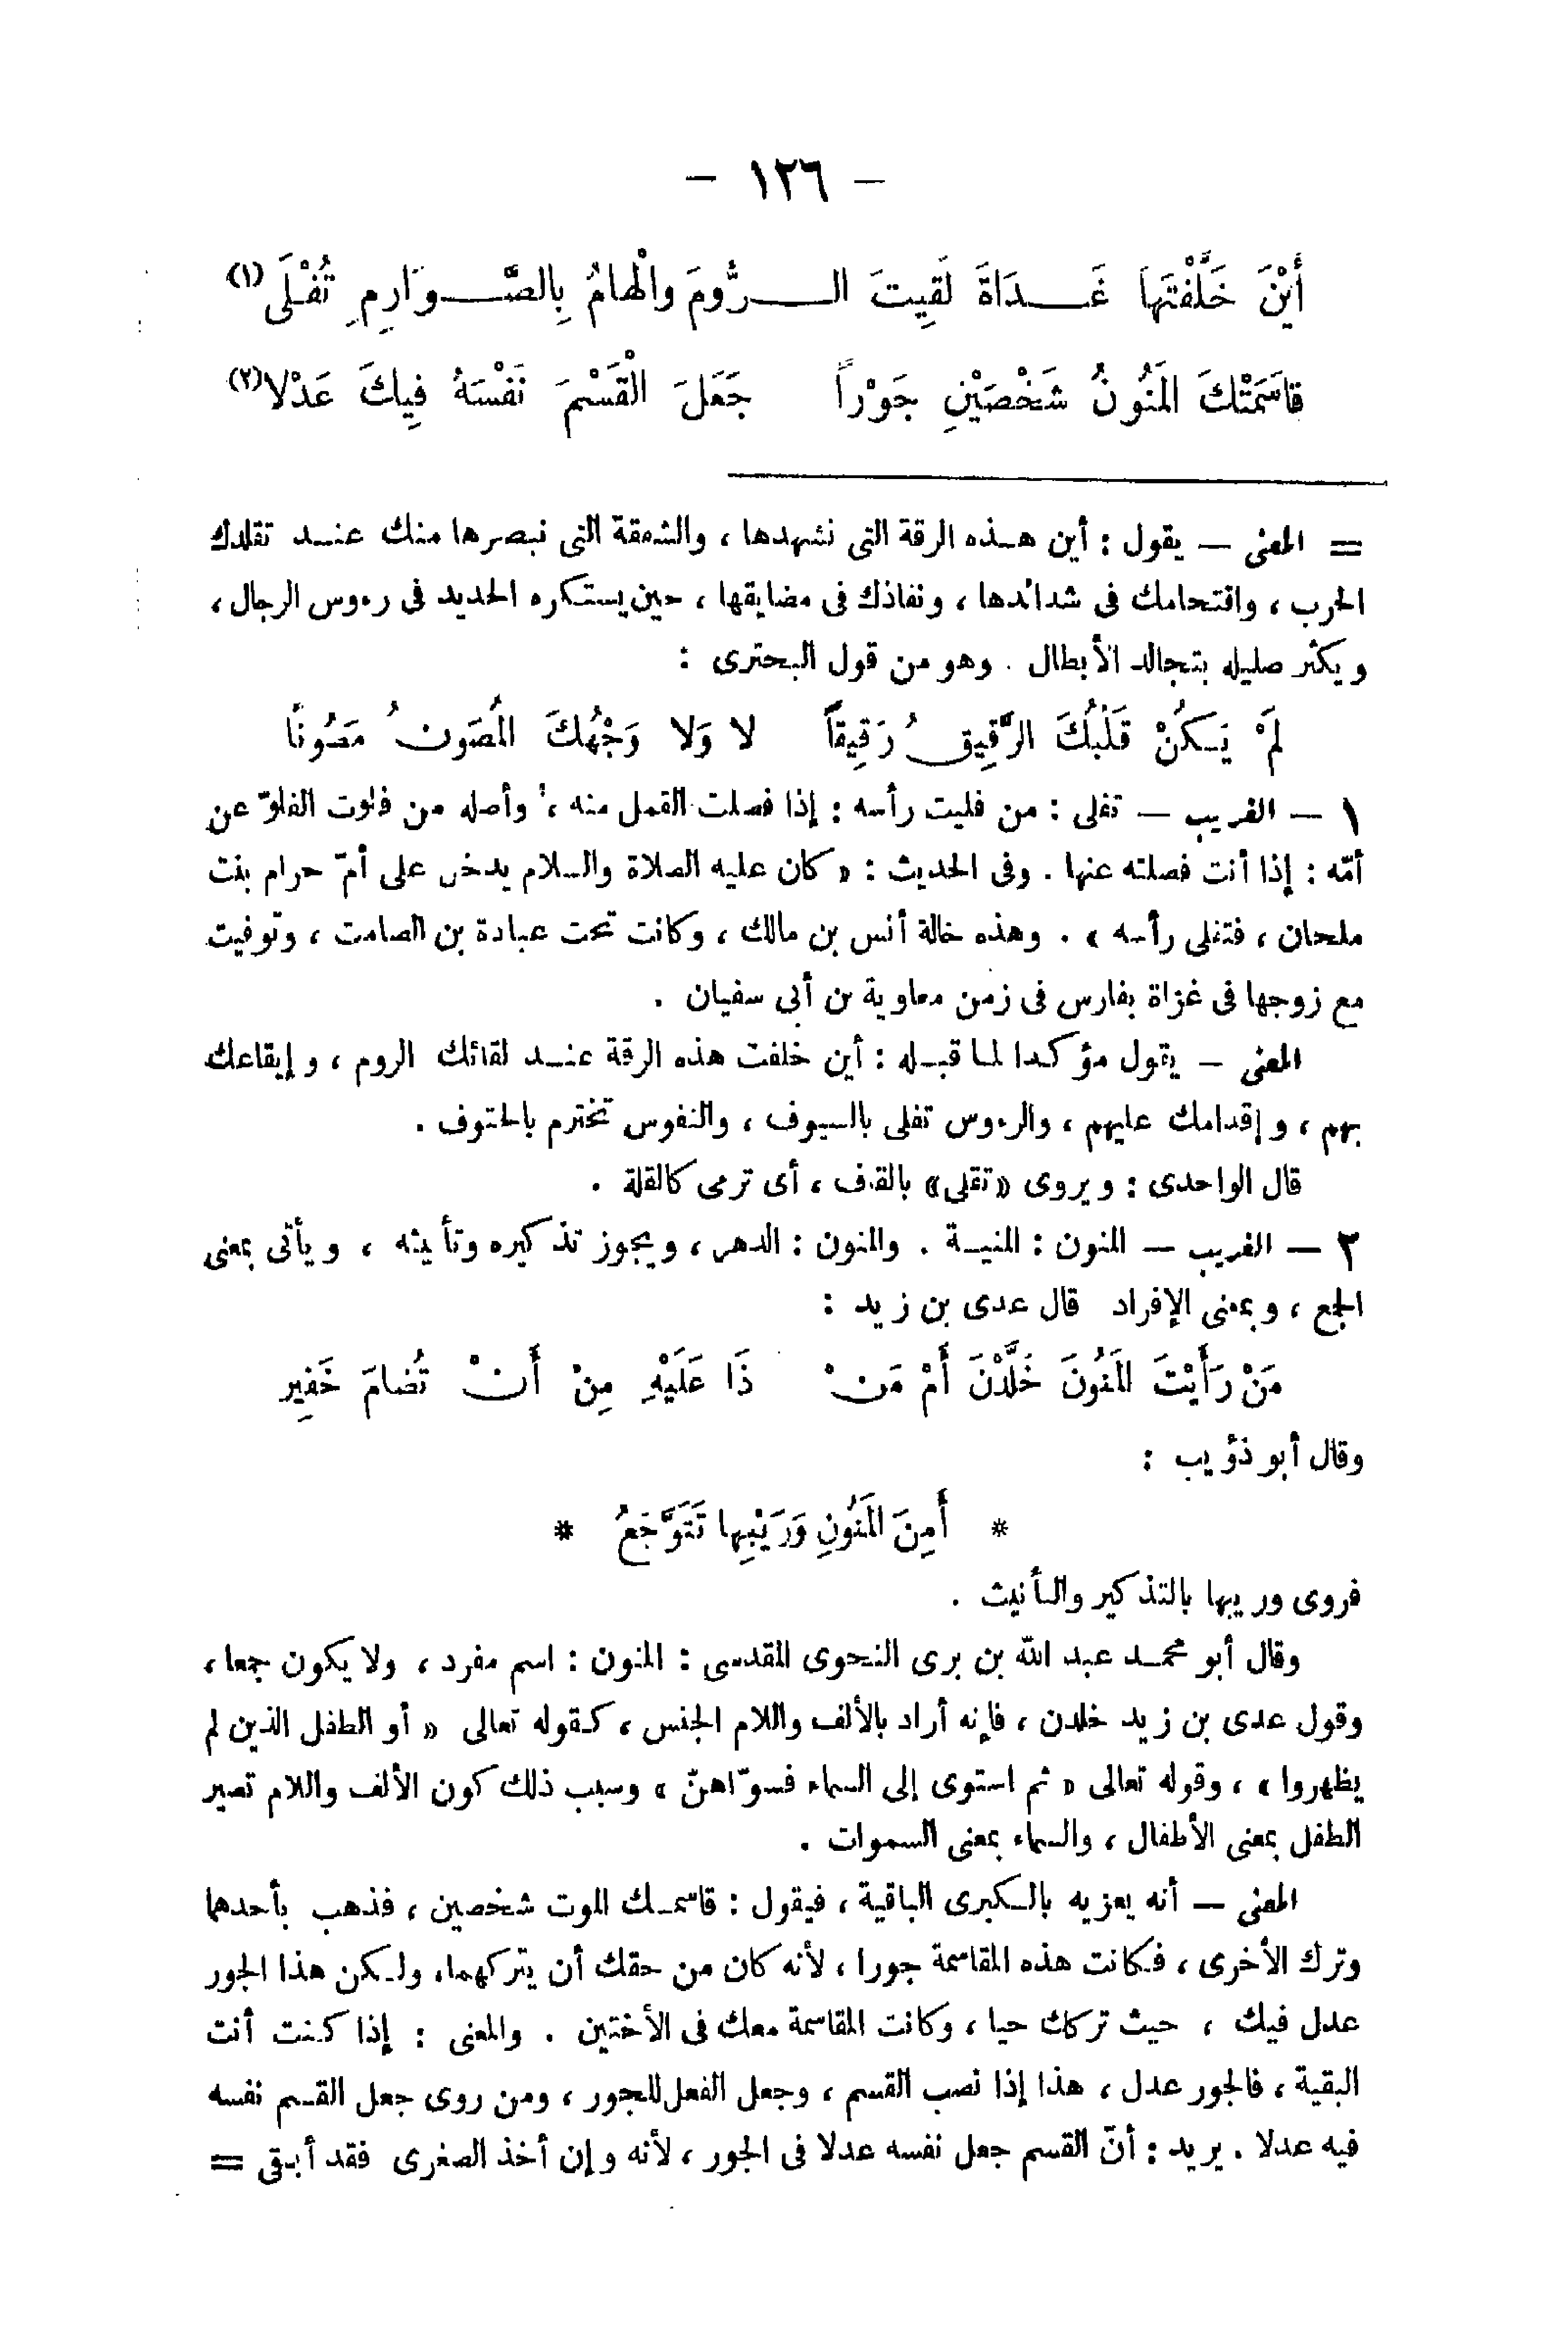 – ١٢٦ –
أَيْنَ خَلَّفْتَهَا غَدَاةَ لَقِيتَ الرُّومَ والْهامُ بِالصَّوَارِمِ تُفْلَى (١)
قاَسَمَتْكَ المَنُونُ شَخْصَيْنِ جَوْراً جَعَلَ الْقَسْمَ نَفْسَهُ فِيكَ عَدْلا (٢)
= المعنى — يقول : أين هذه الرقة التى نشهدها ، والشفقة التى نبصرها منك عند تقلدك
الحرب ، واقتحامك فى شدائدها ، ونفاذك فى مضايقها ، حين يستكره الحديد فى رءوس الرجال ،
ويكثر صليله بتجالد الأبطال . وهو من قول البحترى :
لَمْ يَكُنْ قَلْبُكَ الرَّقِيقُ رَقِيقاً لا وَلا وَجْهُكَ المَصُونُ مَصُونًا
١ — الغريب — تفلى : من فليت رأسه : إذا فصلت القمل منه ، وأصله من فلوت الفلوّ عن
أمّه : إذا أنت فصلته عنها . وفى الحديث : « كان عليه الصلاة والسلام يدخل على أمّ حرام بنت
ملحان ، فتفلى رأسه » . وهذه خالة أنس بن مالك ، وكانت تحت عبادة بن الصامت ، وتوفيت
مع زوجها فى غزاة بفارس فى زمن معاوية بن أبى سفيان .
المعنى — يقول مؤكدا لما قبله : أين خلفت هذه الرقة عند لقائك الروم ، وإيقاعك
بهم ، وإقدامك عليهم ، والرءوس تفلى بالسيوف ، والنفوس تخترم بالحتوف .
قال الواحدى : ويروى «تقلى» بالقاف ، أى ترمى كالقلة .
٢ — الغريب — المنون : المنية . والمنون : الدهر ، ويجوز تذكيره وتأنيثه ، ويأتى بمعنى
الجمع ، وبمعنى الإفراد قال عدى بن زيد :
مَنْ رَأَيْتَ المَنُونَ خَلَّدْنَ أَمْ مَنْ ذَا عَلَيْهِ مِنْ أَنْ تُضامَ خَفِير
وقال أبو ذؤيب :
* أَمِنَ المَنُونِ وَرَيْبِها تَتَوَّجَعُ *
فروى وريبها بالتذكير والتأنيث .
وقال أبو محمد عبد الله بن برى النحوى المقدسى : المنون : اسم مفرد ، ولا يكون جمعا ،
وقول عدى بن زيد خلدن ، فإنه أراد بالألف واللام الجنس ، كقوله تعالى « أو الطفل الذين لم
يظهروا » ، وقوله تعالى « ثم استوى إلى السماء فسوّاهنّ » وسبب ذلك كون الألف واللام تصير
الطفل بمعنى الأطفال ، والسماء بمعنى السموات .
المعنى — أنه يعزيه بالكبرى الباقية ، فيقول : قاسمك الموت شخصين ، فذهب بأحدهما
وترك الأخرى ، فكانت هذه المقاسمة جورا ، لأنه كان من حقك أن يتركهما، ولكن هذا الجور
عدل فيك ، حيث تركك حيا ، وكانت المقاسمة معك فى الأختين . والمعنى : إذا كنت أنت
البقية ، فالجور عدل ، هذا إذا نصب القسم ، وجعل الفعل للجور ، ومن روى جعل القسم نفسه
فيه عدلا . يريد : أنّ القسم جعل نفسه عدلا فى الجور ، لأنه وإن أخذ الصغرى فقد أبقى =